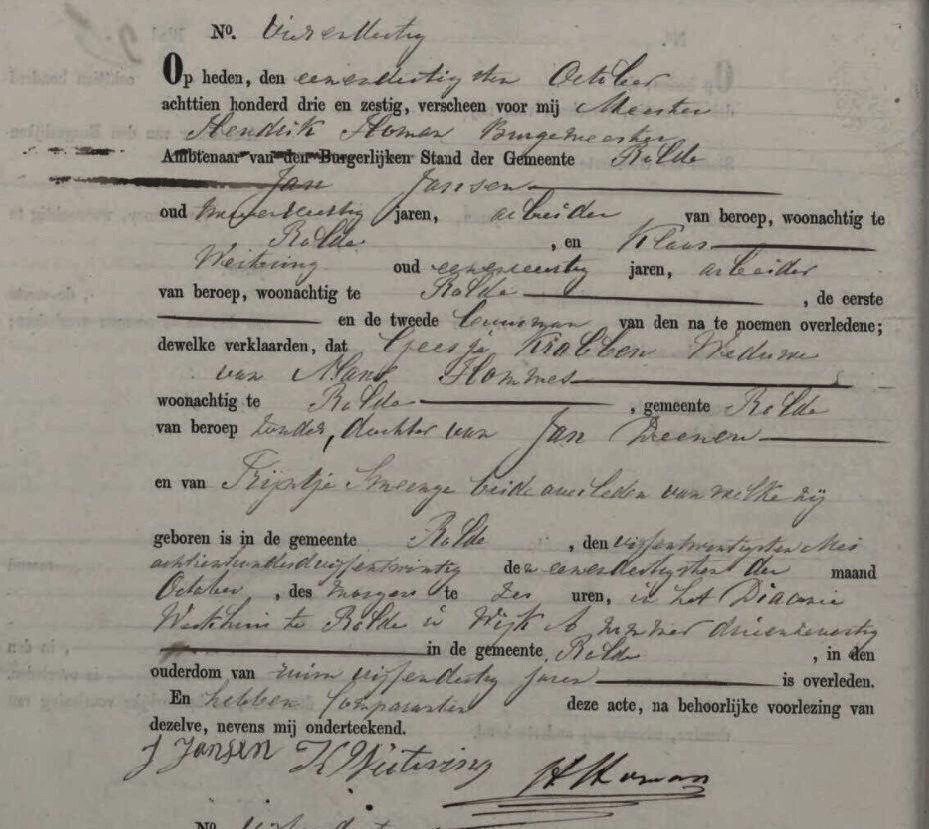 No. Vierendertig
Op heden, den eenendertigsten October
achttien honderd drie en zestig, verscheen voor mij Meester
Hendrik Homan Burgemeester
Ambtenaar van den Burgerlijken Stand der Gemeente Rolde
Jan Jansen
oud jaren, arbeider van beroep, woonachtig te
Rolde, en Klaas
Weitering oud jaren, arbeider
van beroep, woonachtig te Rolde, de eerste
en de tweede buurman van den na te noemen overledene;
dewelke verklaarden, dat Geesje Krabben Weduwe
van Hommes
woonachtig te Rolde, gemeente Rolde
van beroep zonder, dochter van Jan
en van Trijntje Smeenge beide overleden van welke zij
geboren is in de gemeente Rolde, den vijfentwintigsten Mei
achttienhonderdvijfentwintig den eenendertigsten der maand
October, des morgens te zes uren, in het Diaconie
Werkhuis te Rolde in Wijk A nummer drieenzeventig
in de gemeente Rolde, in den
ouderdom van ruim jaren is overleden.
En hebben Comparanten deze acte, na behoorlijke voorlezing van
dezelve, nevens mij onderteekend.
J Jansen K Weitering H Homan
No.